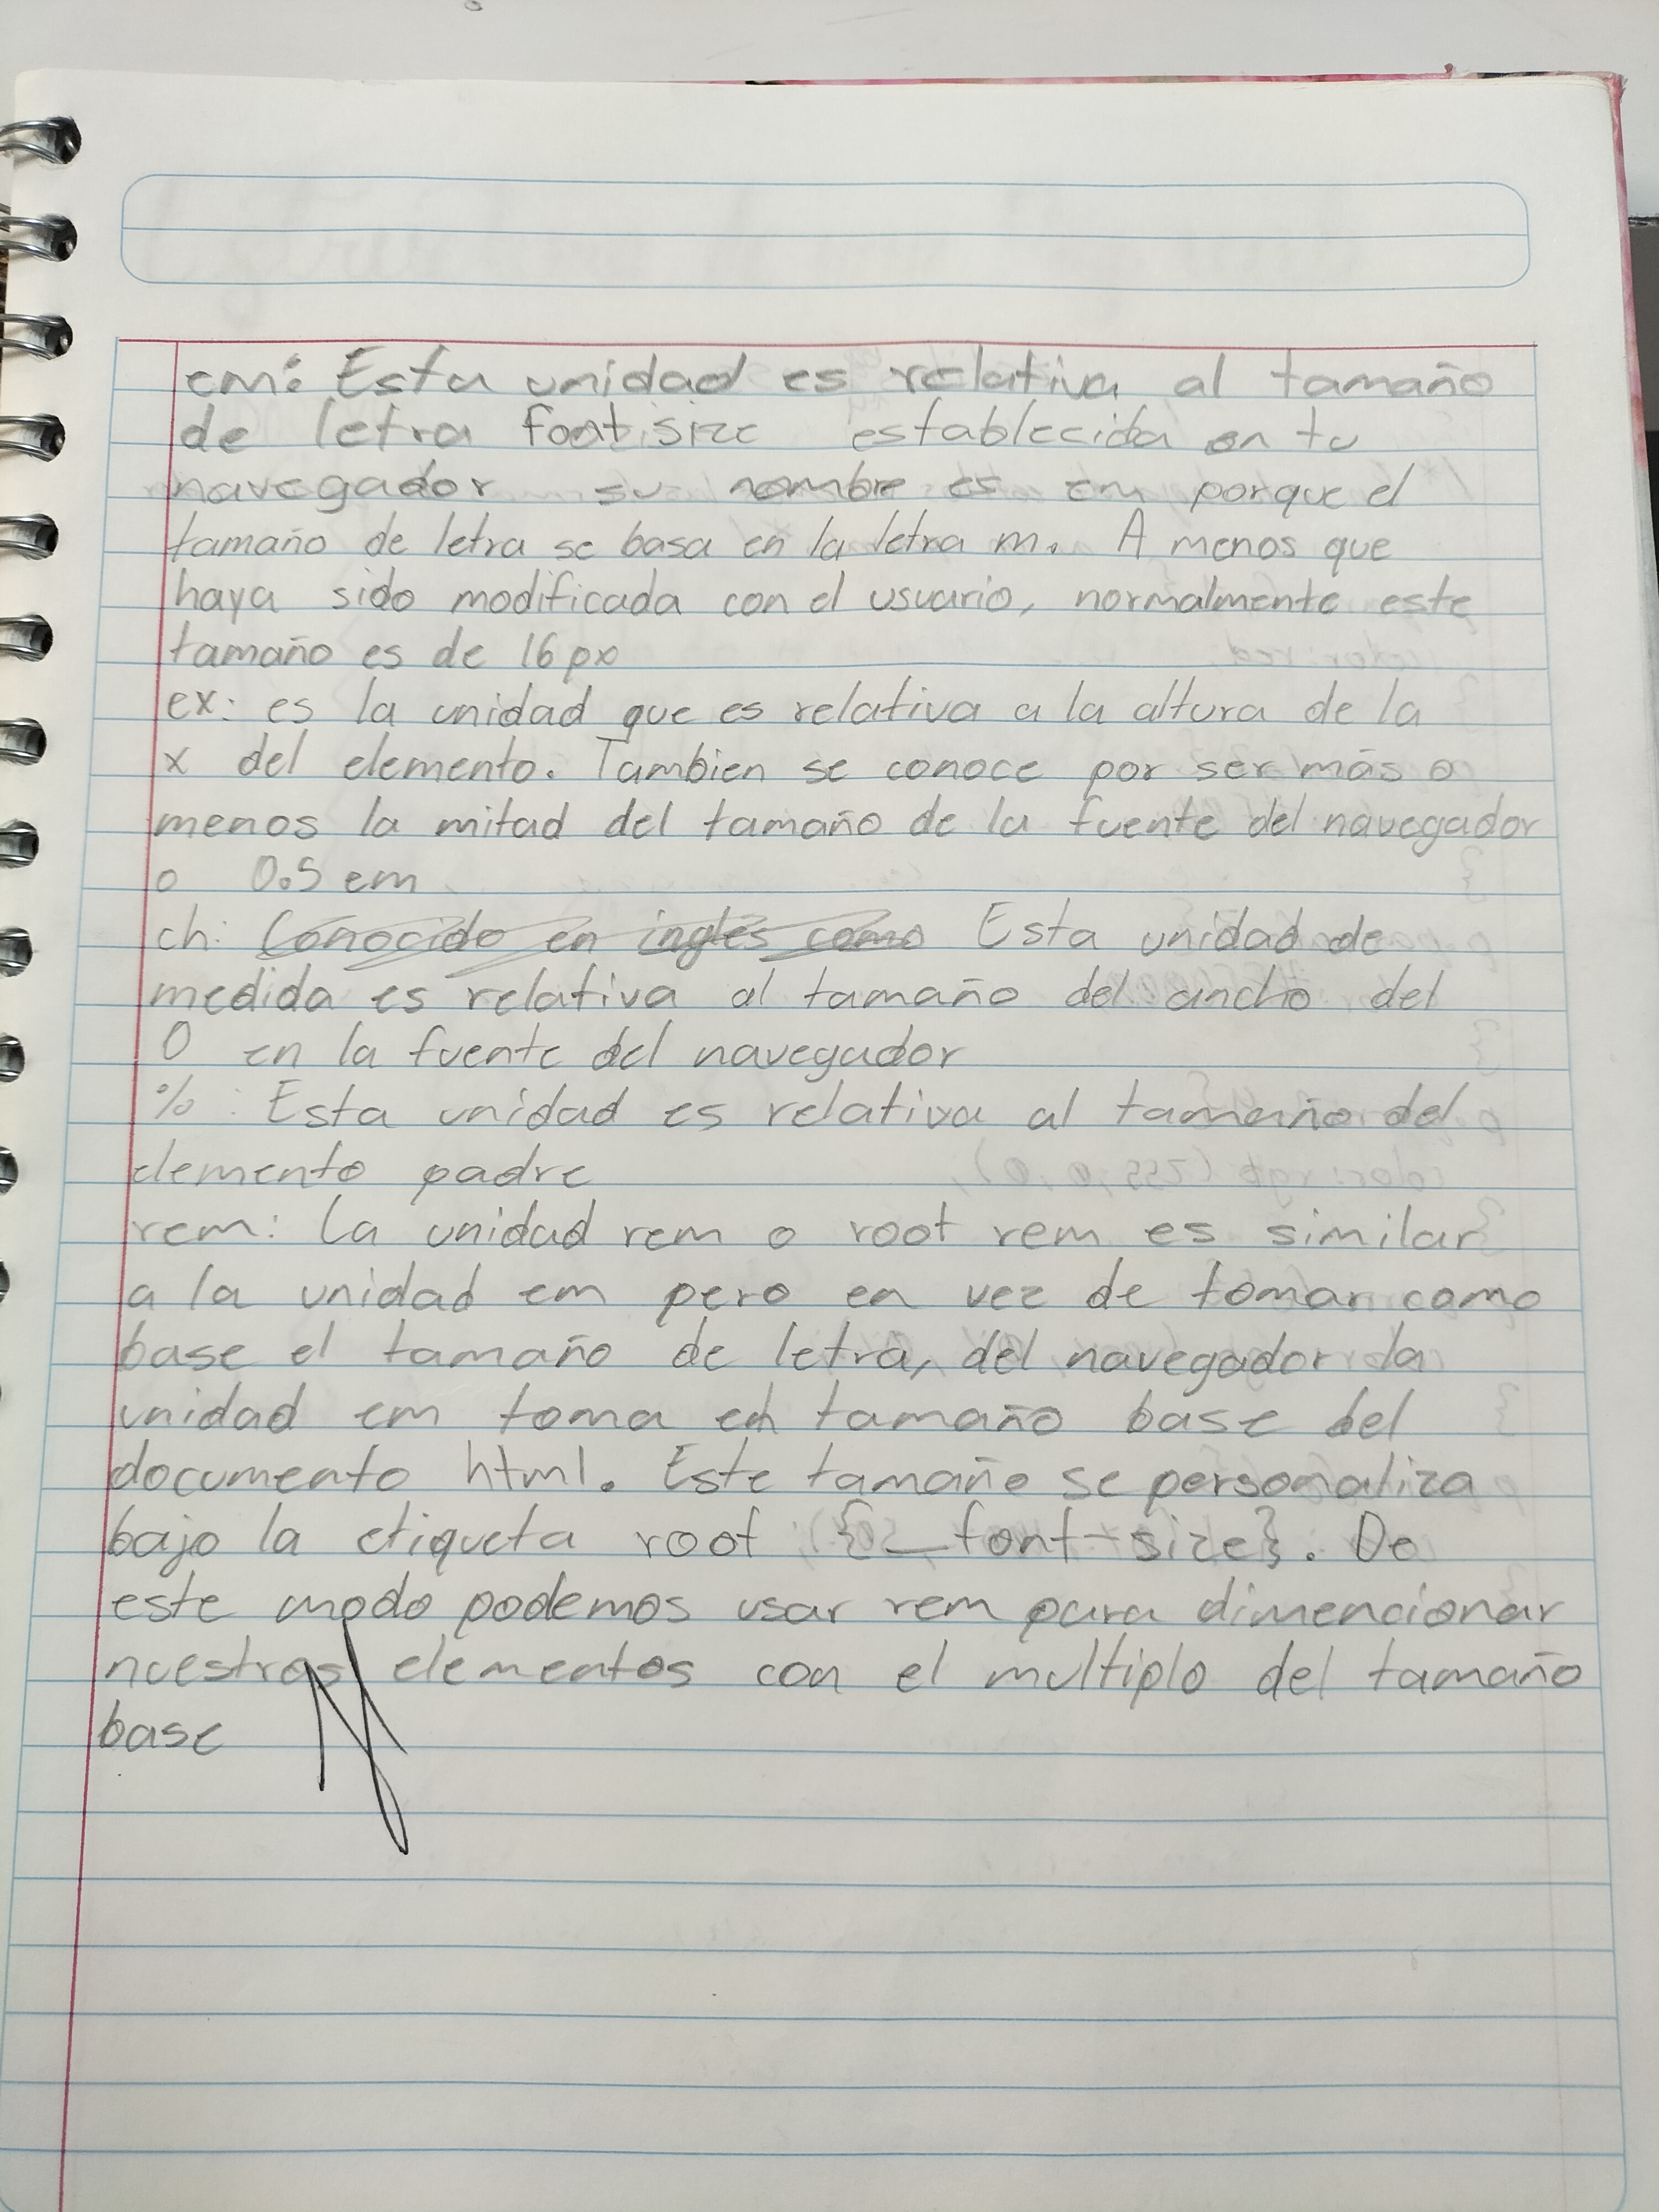 em: Esta unidad es relativa al tamaño
de letra font size establecida en tu
navegador su nombre es em porque el
tamaño de letra se basa en la letra m. A menos que
haya sido modificada con el usuario, normalmente este
tamaño es de 16 px
ex: es la unidad que es relativa a la altura de la
x del elemento. Tambien se conoce por ser más o
menos la mitad del tamaño de la fuente del navegador
o 0.5 em
ch: Conocido en ingles como Esta unidad de
medida es relativa al tamaño del ancho del
0 en la fuente del navegador
%: Esta unidad es relativa al tamaño del
elemento padre
rem: La unidad rem o root rem es similar
a la unidad em pero en vez de tomar como
base el tamaño de letra, del navegador la
unidad em toma el tamaño base del
documento html. Este tamaño se personaliza
bajo la etiqueta root {_font-size}. De
este modo podemos usar rem para dimencionar
nuestros elementos con el multiplo del tamaño
base